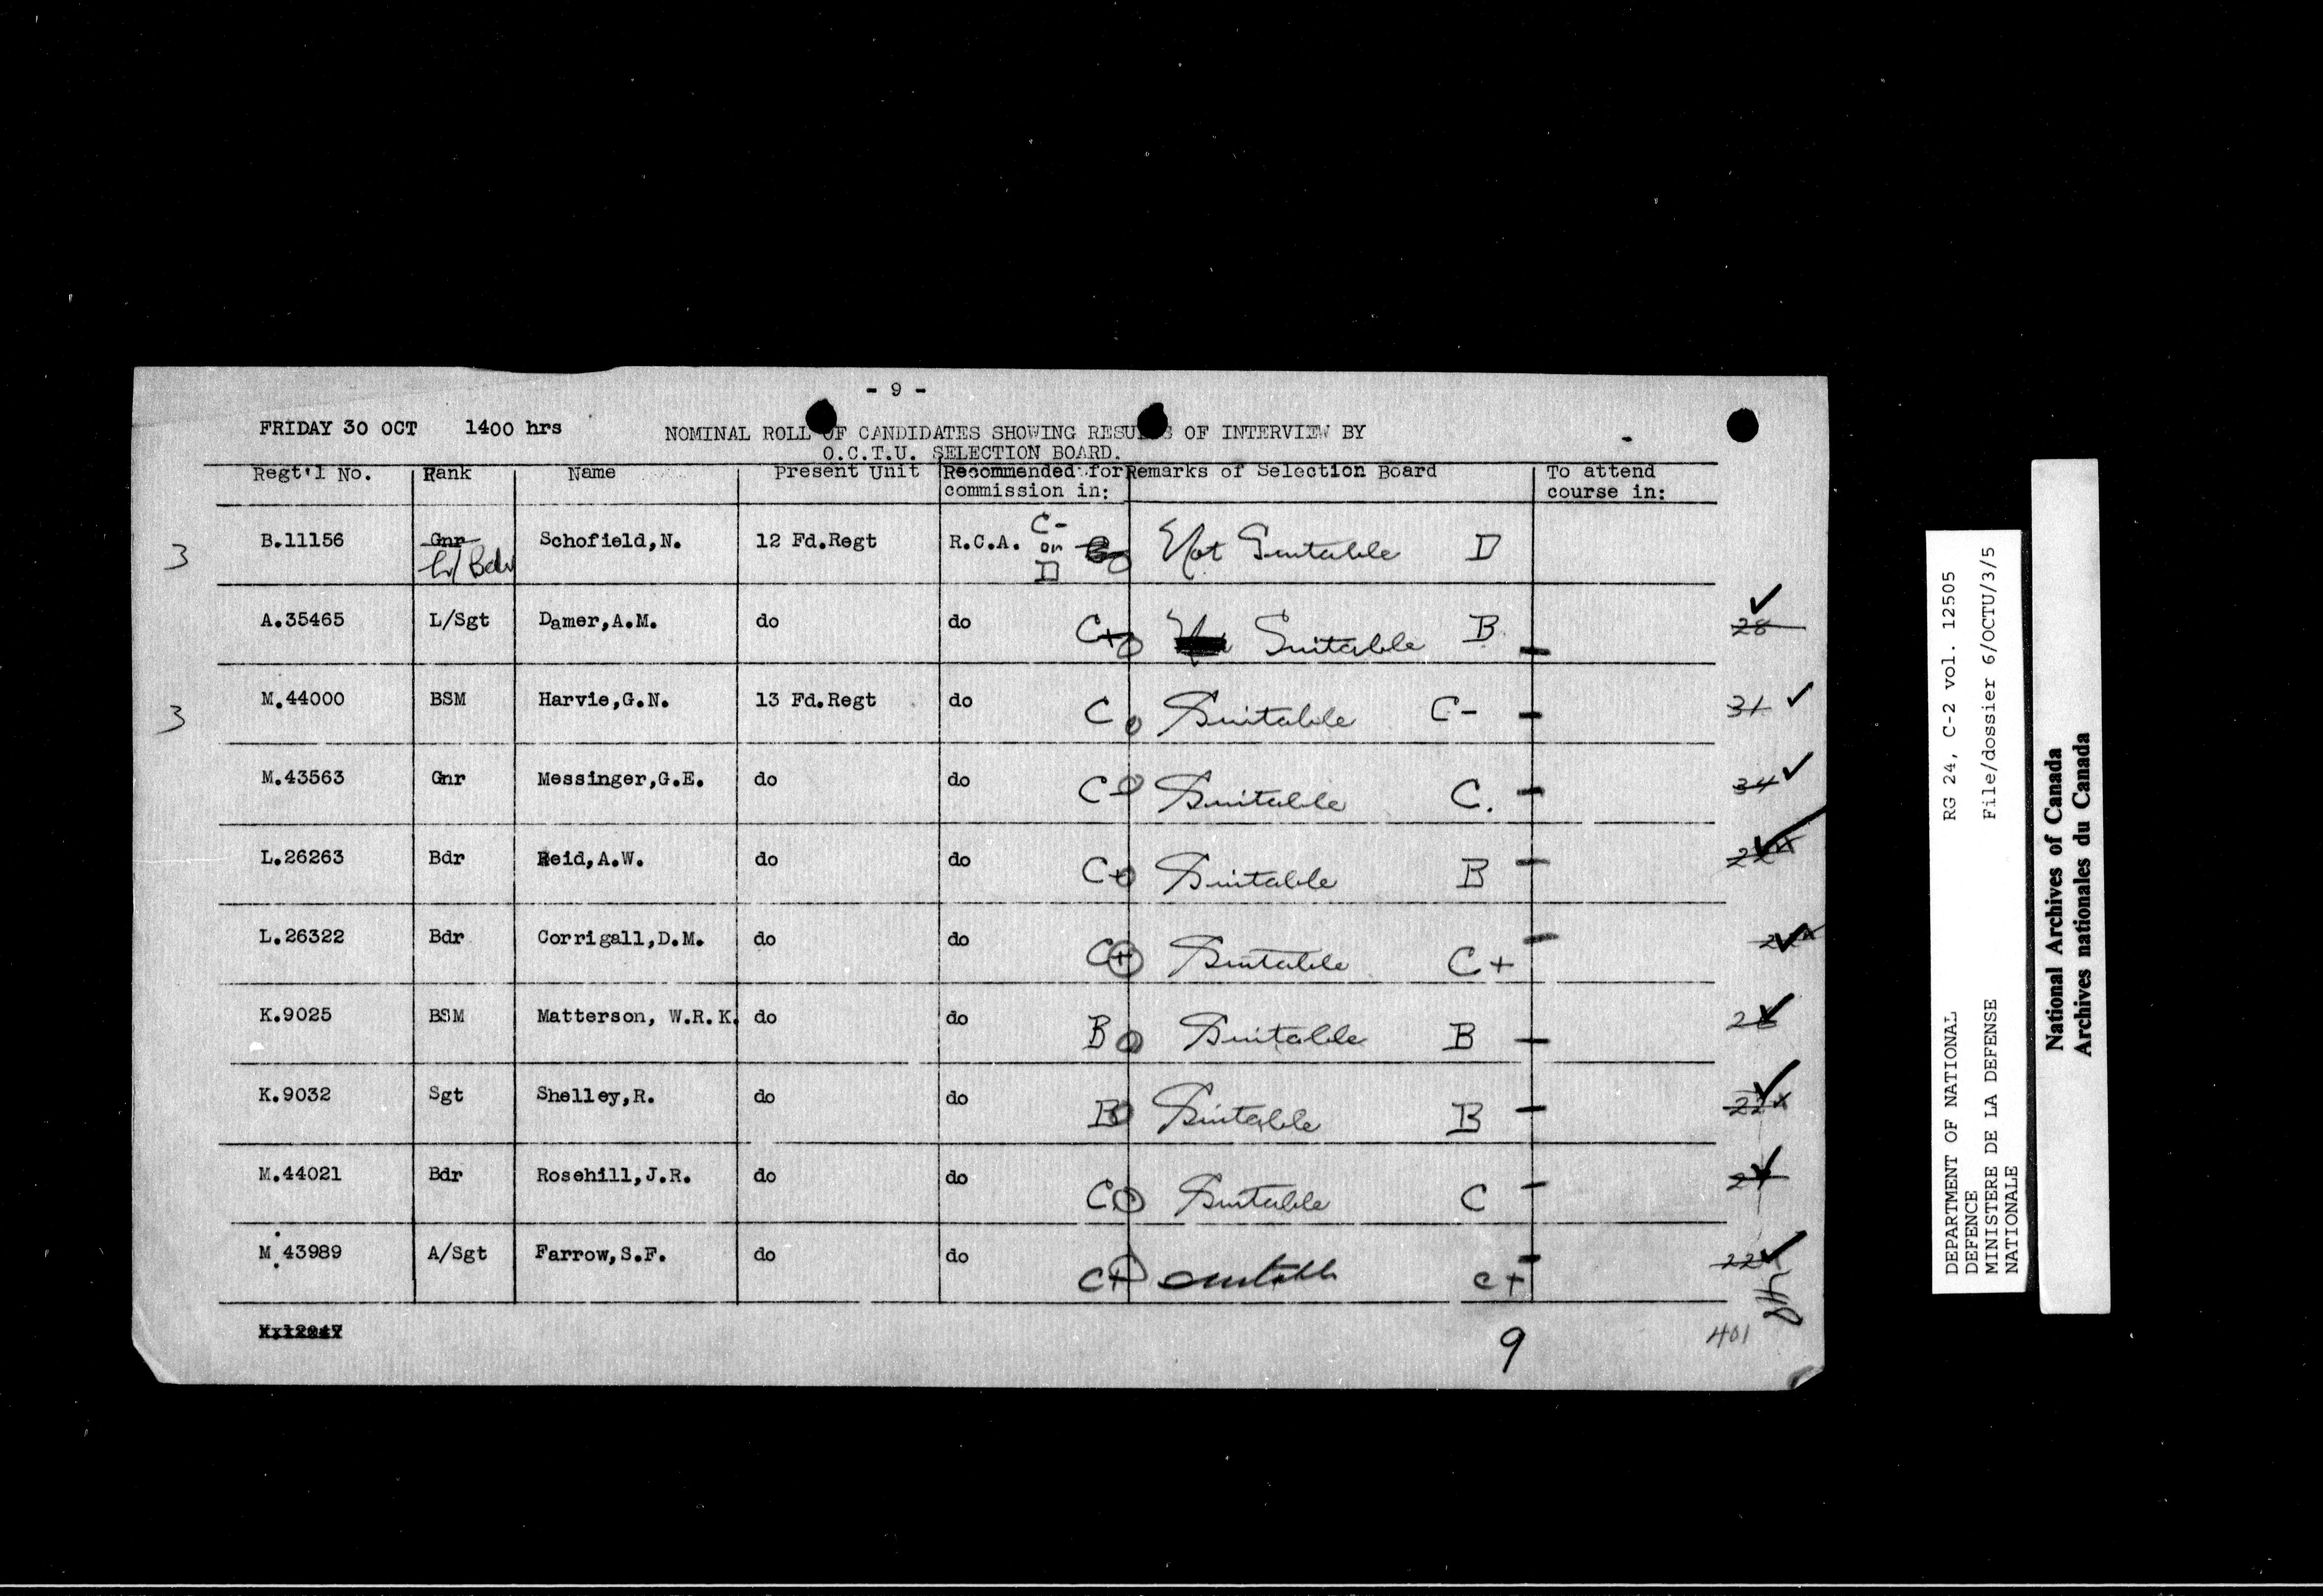 - 9 -
FRIDAY 30 OCT 1400 hrs NOMINAL ROLL OF CANDIDATES SHOWING RESULTS OF INTERVIEW BY
O.C.T.U. SELECTION BOARD.
Regt'l No. Rank Name Present Unit Recommended for Remarks of Selection Board To attend
commission in: course in:
3 B.11156 Gnr Schofield,N. 12 Fd.Regt R.C.A. C- or D Not Suitable D
L/Bdr
A.35465 L/Sgt Damer,A.M. do do C+ Suitable B 28
3 M.44000 BSM Harvie,G.N. 13 Fd.Regt do C Suitable C- 31
M.43563 Gnr Messinger,G.E. do do C- Suitable C. 34
L.26263 Bdr Reid,A.W. do do C+ Suitable B
L.26322 Bdr Corrigall,D.M. do do C+ Suitable C+
K.9025 BSM Matterson, W.R.K. do do B Suitable B
K.9032 Sgt Shelley,R. do do B Suitable B 22x
M.44021 Bdr Rosehill,J.R. do do C Suitable C
M.43989 A/Sgt Farrow,S.F. do do C+ Suitable C+ 22
9 401
DEPARTMENT OF NATIONAL RG 24, C-2 vol. 12505
DEFENCE
MINISTERE DE LA DEFENSE File/dossier 6/OCTU/3/5
NATIONALE
National Archives of Canada
Archives nationales du Canada